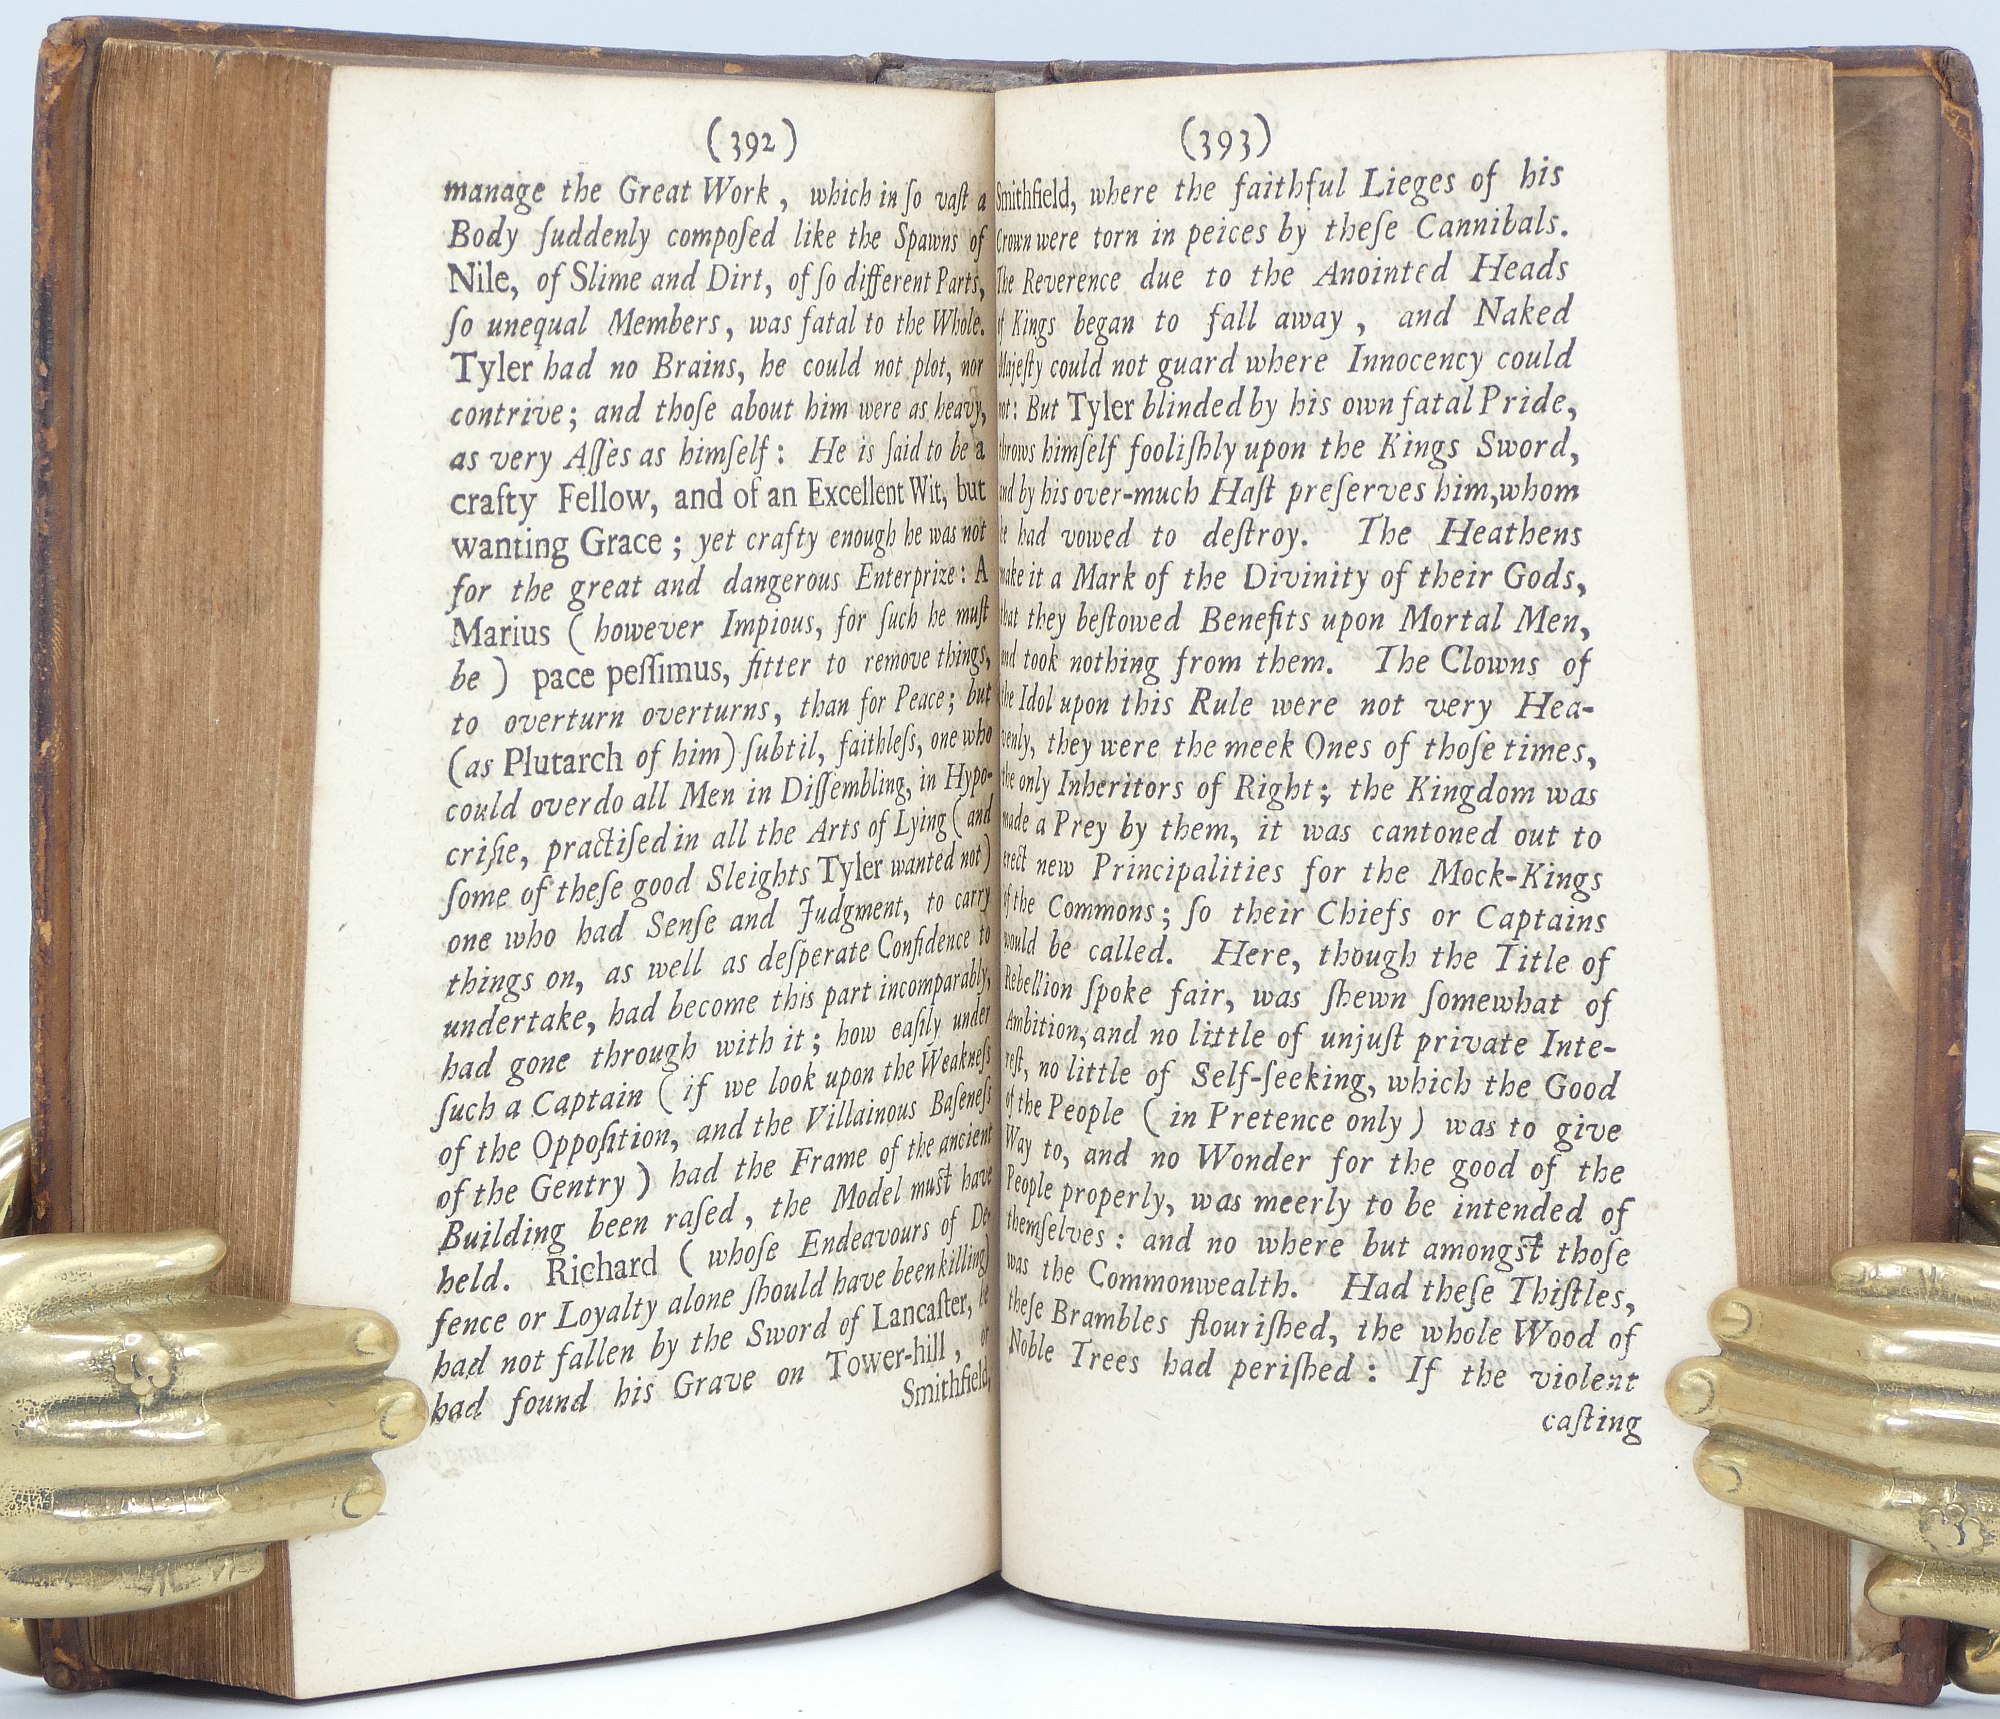 (392)
manage the Great Work, which in ſo vaſt a
Body ſuddenly compoſed like the Spawns of
Nile, of Slime and Dirt, of ſo different Parts,
ſo unequal Members, was fatal to the Whole.
Tyler had no Brains, he could not plot, nor
contrive; and thoſe about him were as heavy,
as very Aſſes as himſelf: He is ſaid to be a
crafty Fellow, and of an Excellent Wit, but
wanting Grace; yet crafty enough he was not
for the great and dangerous Enterprize: A
Marius (however Impious, for ſuch he muſt
be) pace peſſimus, fitter to remove things,
to overturn overturns, than for Peace; but
(as Plutarch of him) ſubtil, faithleſs, one who
could overdo all Men in Diſſembling, in Hypo-
criſie, practiſed in all the Arts of Lying (and
ſome of theſe good Sleights Tyler wanted not)
one who had Senſe and Judgment, to carry
things on, as well as deſperate Confidence to
undertake, had become this part incomparably,
had gone through with it; how eaſily under
ſuch a Captain (if we look upon the Weakneſs
of the Oppoſition, and the Villainous Baſeneſs
of the Gentry) had the Frame of the ancient
Building been raſed, the Model muſt have
held. Richard (whoſe Endeavours of De-
fence or Loyalty alone ſhould have been killing)
had not fallen by the Sword of Lancaſter, he
had found his Grave on Tower-hill, or
Smithfield,
(393)
Smithfield, where the faithful Lieges of his
Crown were torn in peices by theſe Cannibals.
The Reverence due to the Anointed Heads
of Kings began to fall away, and Naked
Majeſty could not guard where Innocency could
not: But Tyler blinded by his own fatal Pride,
throws himſelf fooliſhly upon the Kings Sword,
and by his over-much Haſt preſerves him, whom
he had vowed to deſtroy. The Heathens
make it a Mark of the Divinity of their Gods,
that they beſtowed Benefits upon Mortal Men,
and took nothing from them. The Clowns of
the Idol upon this Rule were not very Hea-
venly, they were the meek Ones of thoſe times,
the only Inheritors of Right; the Kingdom was
made a Prey by them, it was cantoned out to
erect new Principalities for the Mock-Kings
of the Commons; ſo their Chiefs or Captains
would be called. Here, though the Title of
Rebellion ſpoke fair, was ſhewn ſomewhat of
Ambition, and no little of unjuſt private Inte-
reſt, no little of Self-ſeeking, which the Good
of the People (in Pretence only) was to give
Way to, and no Wonder for the good of the
People properly, was meerly to be intended of
themſelves: and no where but amongſt thoſe
was the Commonwealth. Had theſe Thiſtles,
theſe Brambles flouriſhed, the whole Wood of
Noble Trees had periſhed: If the violent
caſting